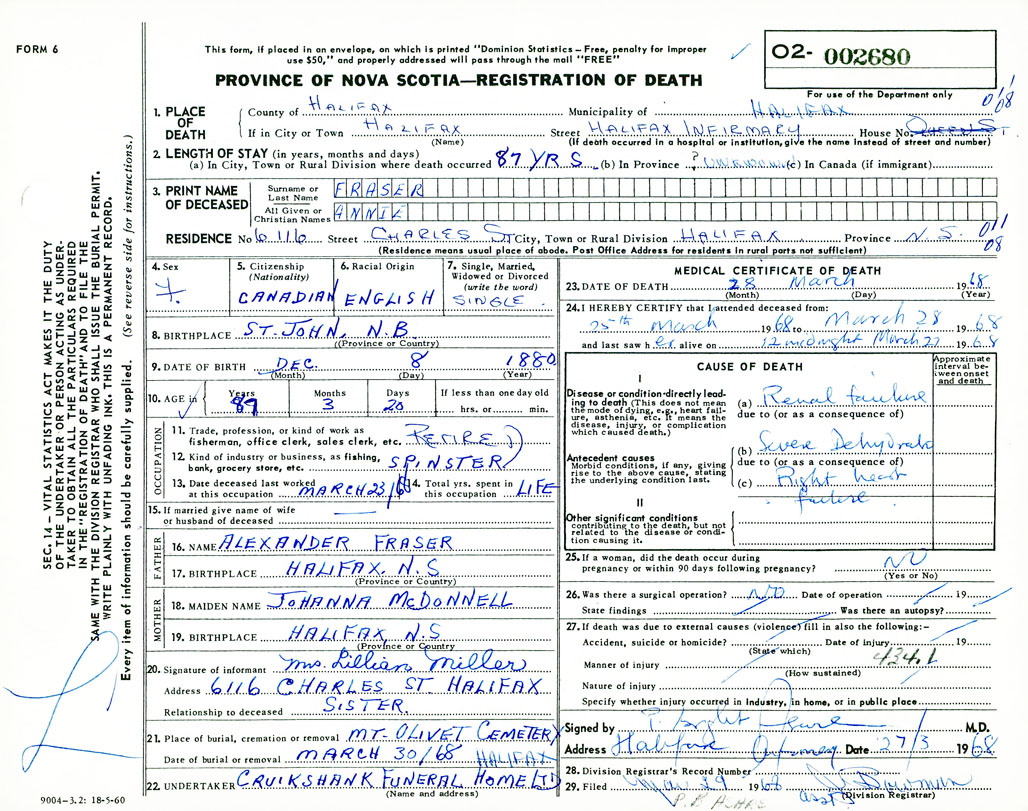 FORM 6
This form, if placed in an envelope, on which is printed "Dominion Statistics – Free, penalty for improper
use $50," and properly addressed will pass through the mail "FREE"
O2- 002680
PROVINCE OF NOVA SCOTIA—REGISTRATION OF DEATH
For use of the Department only
1. PLACE OF DEATH
County of HALIFAX Municipality of HALIFAX
If in City or Town HALIFAX Street HALIFAX INFIRMARY House No. QUEEN ST.
(Name) (If death occurred in a hospital or institution, give the name instead of street and number)
2. LENGTH OF STAY (in years, months and days)
(a) In City, Town or Rural Division where death occurred 87 YRS (b) In Province ? (c) In Canada (if immigrant)
3. PRINT NAME OF DECEASED
Surname or Last Name FRASER
All Given or Christian Names ANNIE
RESIDENCE No 6116 Street CHARLES ST City, Town or Rural Division HALIFAX Province N.S.
011
08
(Residence means usual place of abode. Post Office Address for residents in rural parts not sufficient)
4. Sex F.
5. Citizenship (Nationality) CANADIAN
6. Racial Origin ENGLISH
7. Single, Married, Widowed or Divorced (write the word) SINGLE
8. BIRTHPLACE ST. JOHN, N.B.
(Province or Country)
9. DATE OF BIRTH DEC. 8 1880
(Month) (Day) (Year)
10. AGE in Years 87 Months 3 Days 20 If less than one day old hrs. or min.
OCCUPATION
11. Trade, profession, or kind of work as fisherman, office clerk, sales clerk, etc. RETIRED
12. Kind of industry or business, as fishing, bank, grocery store, etc. SPINSTER
13. Date deceased last worked at this occupation MARCH 23/68
14. Total yrs. spent in this occupation LIFE
15. If married give name of wife or husband of deceased
FATHER
16. NAME ALEXANDER FRASER
17. BIRTHPLACE HALIFAX, N.S
(Province or Country)
MOTHER
18. MAIDEN NAME JOHANNA McDONNELL
19. BIRTHPLACE HALIFAX, N.S
(Province or Country)
20. Signature of informant Mrs. Lillian Miller
Address 6116 CHARLES ST HALIFAX
Relationship to deceased SISTER.
21. Place of burial, cremation or removal MT. OLIVET CEMETERY
Date of burial or removal MARCH 30/68 HALIFAX
22. UNDERTAKER CRUIKSHANK FUNERAL HOME LTD
(Name and address)
9004-3.2: 18-5-60
MEDICAL CERTIFICATE OF DEATH
23. DATE OF DEATH 28 March 1968
(Month) (Day) (Year)
24. I HEREBY CERTIFY that I attended deceased from:
25th March 1968 to March 28 1968
and last saw her alive on 12 midnight March 27 1968
CAUSE OF DEATH
Approximate interval between onset and death
I
Disease or condition directly leading to death (This does not mean the mode of dying, e.g., heart failure, asthenia, etc. It means the disease, injury, or complication which caused death.)
(a) Renal failure
due to (or as a consequence of)
(b) Severe Dehydrate
due to (or as a consequence of)
(c) Right heart failure
Antecedent causes
Morbid conditions, if any, giving rise to the above cause, stating the underlying condition last.
II
Other significant conditions
contributing to the death, but not related to the disease or condition causing it.
25. If a woman, did the death occur during pregnancy or within 90 days following pregnancy? NO
(Yes or No)
26. Was there a surgical operation? NO Date of operation 19
State findings Was there an autopsy?
27. If death was due to external causes (violence) fill in also the following:-
Accident, suicide or homicide? Date of injury 19
(State which) 434.1
Manner of injury
(How sustained)
Nature of injury
Specify whether injury occurred in industry, in home, or in public place
Signed by M.D.
Address Halifax Infirmary Date 27/3 1968
28. Division Registrar's Record Number
29. Filed Mar 29 1968
(Division Registrar)
SEC. 14 – VITAL STATISTICS ACT MAKES IT THE DUTY
OF THE UNDERTAKER OR PERSON ACTING AS UNDER-
TAKER TO OBTAIN ALL THE PARTICULARS REQUIRED
IN THE "REGISTRATION OF DEATH" AND TO FILE THE
SAME WITH THE DIVISION REGISTRAR WHO SHALL ISSUE THE BURIAL PERMIT.
WRITE PLAINLY WITH UNFADING INK. THIS IS A PERMANENT RECORD.
Every item of information should be carefully supplied. (See reverse side for instructions.)